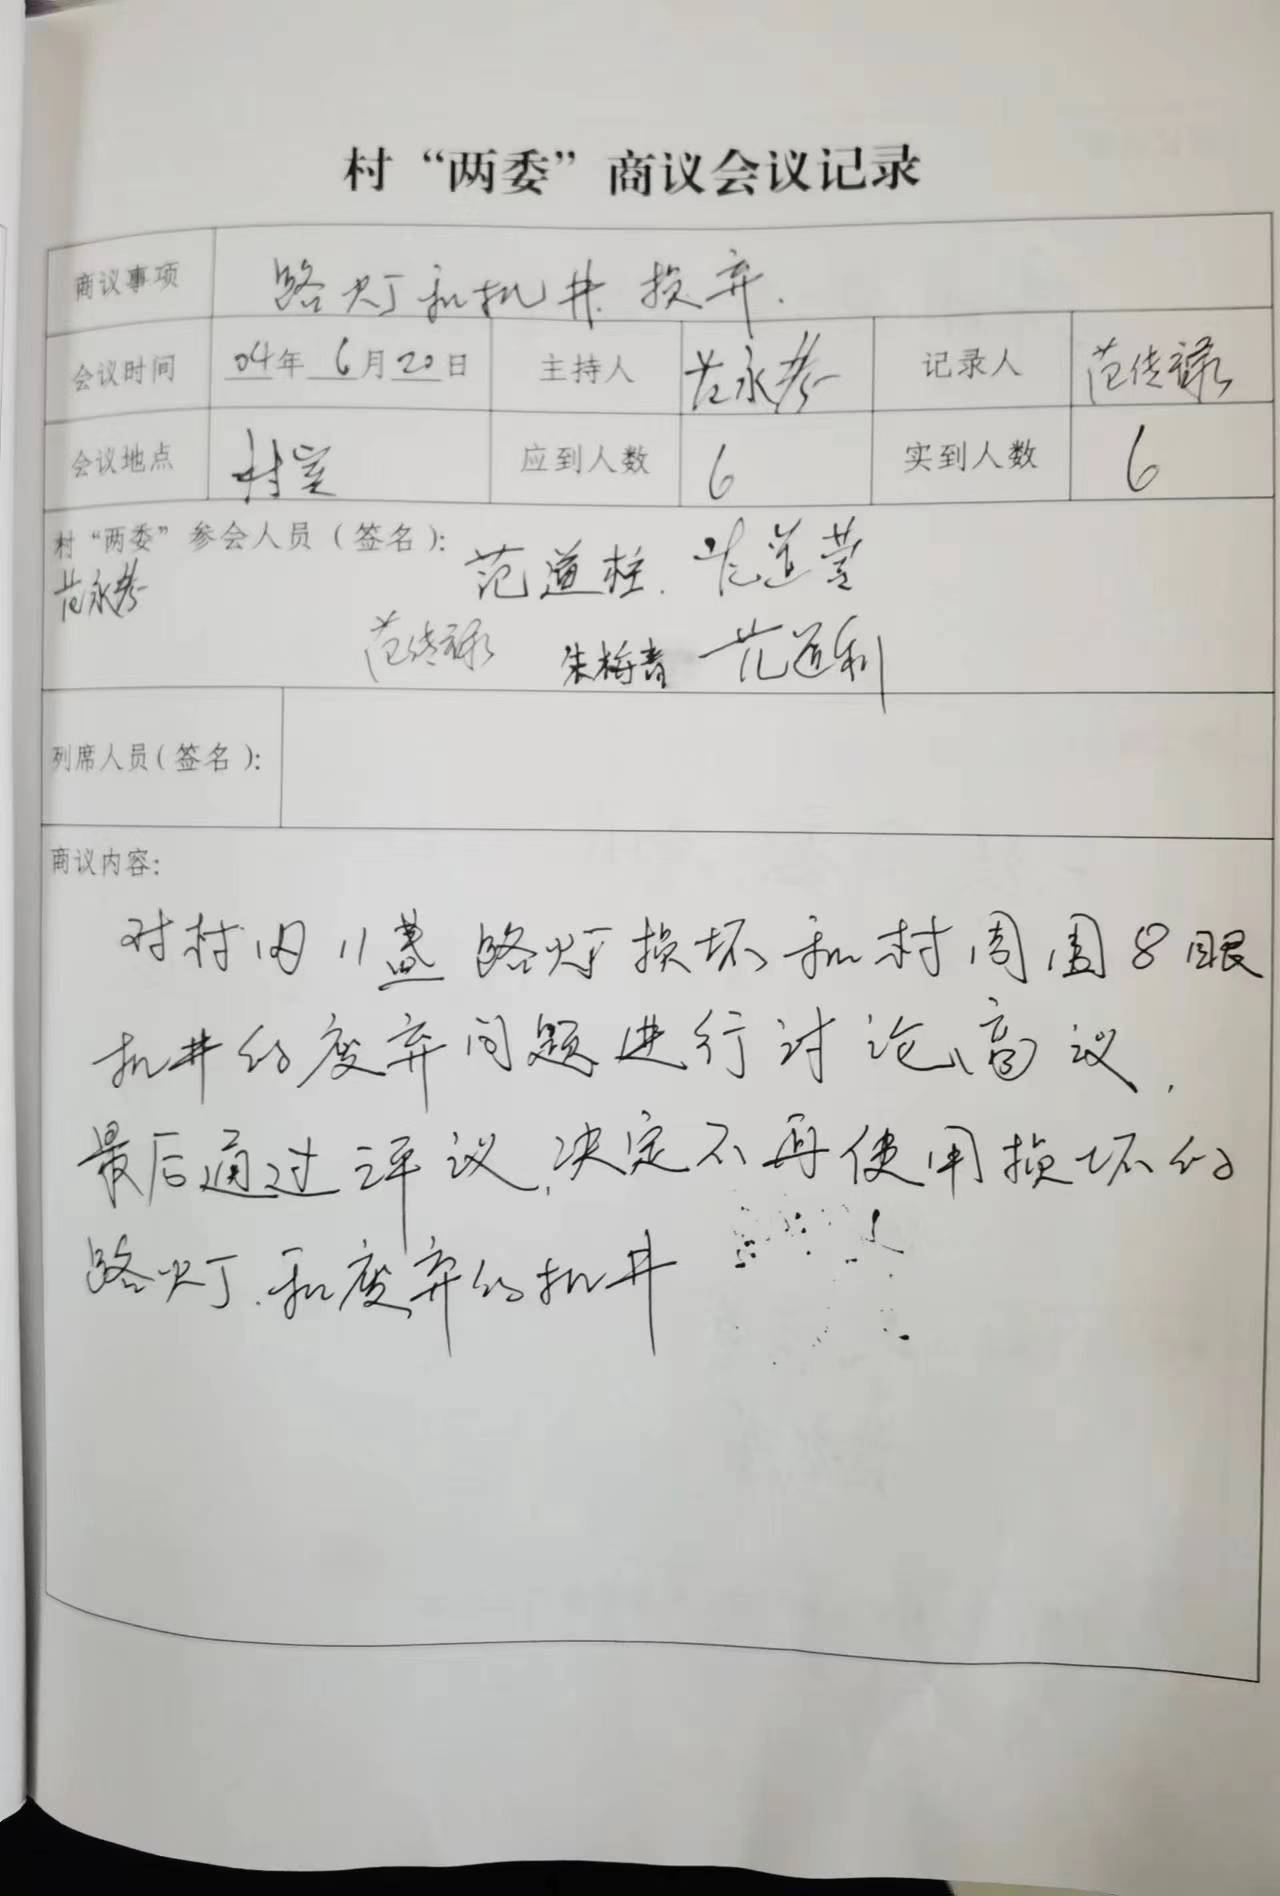 村“两委”商议会议记录
商议事项 路灯和机井损弃.
会议时间 04年 6月20日 主持人 范永孝 记录人 范传禄
会议地点 村室 应到人数 6 实到人数 6
村“两委”参会人员（签名）：
范永孝 范道柱. 范道
范传禄 朱梅青 范道利
列席人员（签名）：
商议内容：
对村内11盏路灯损坏和村周围8眼
机井的废弃问题进行讨论、商议,
最后通过评议,决定不再使用损坏的
路灯.和废弃的机井